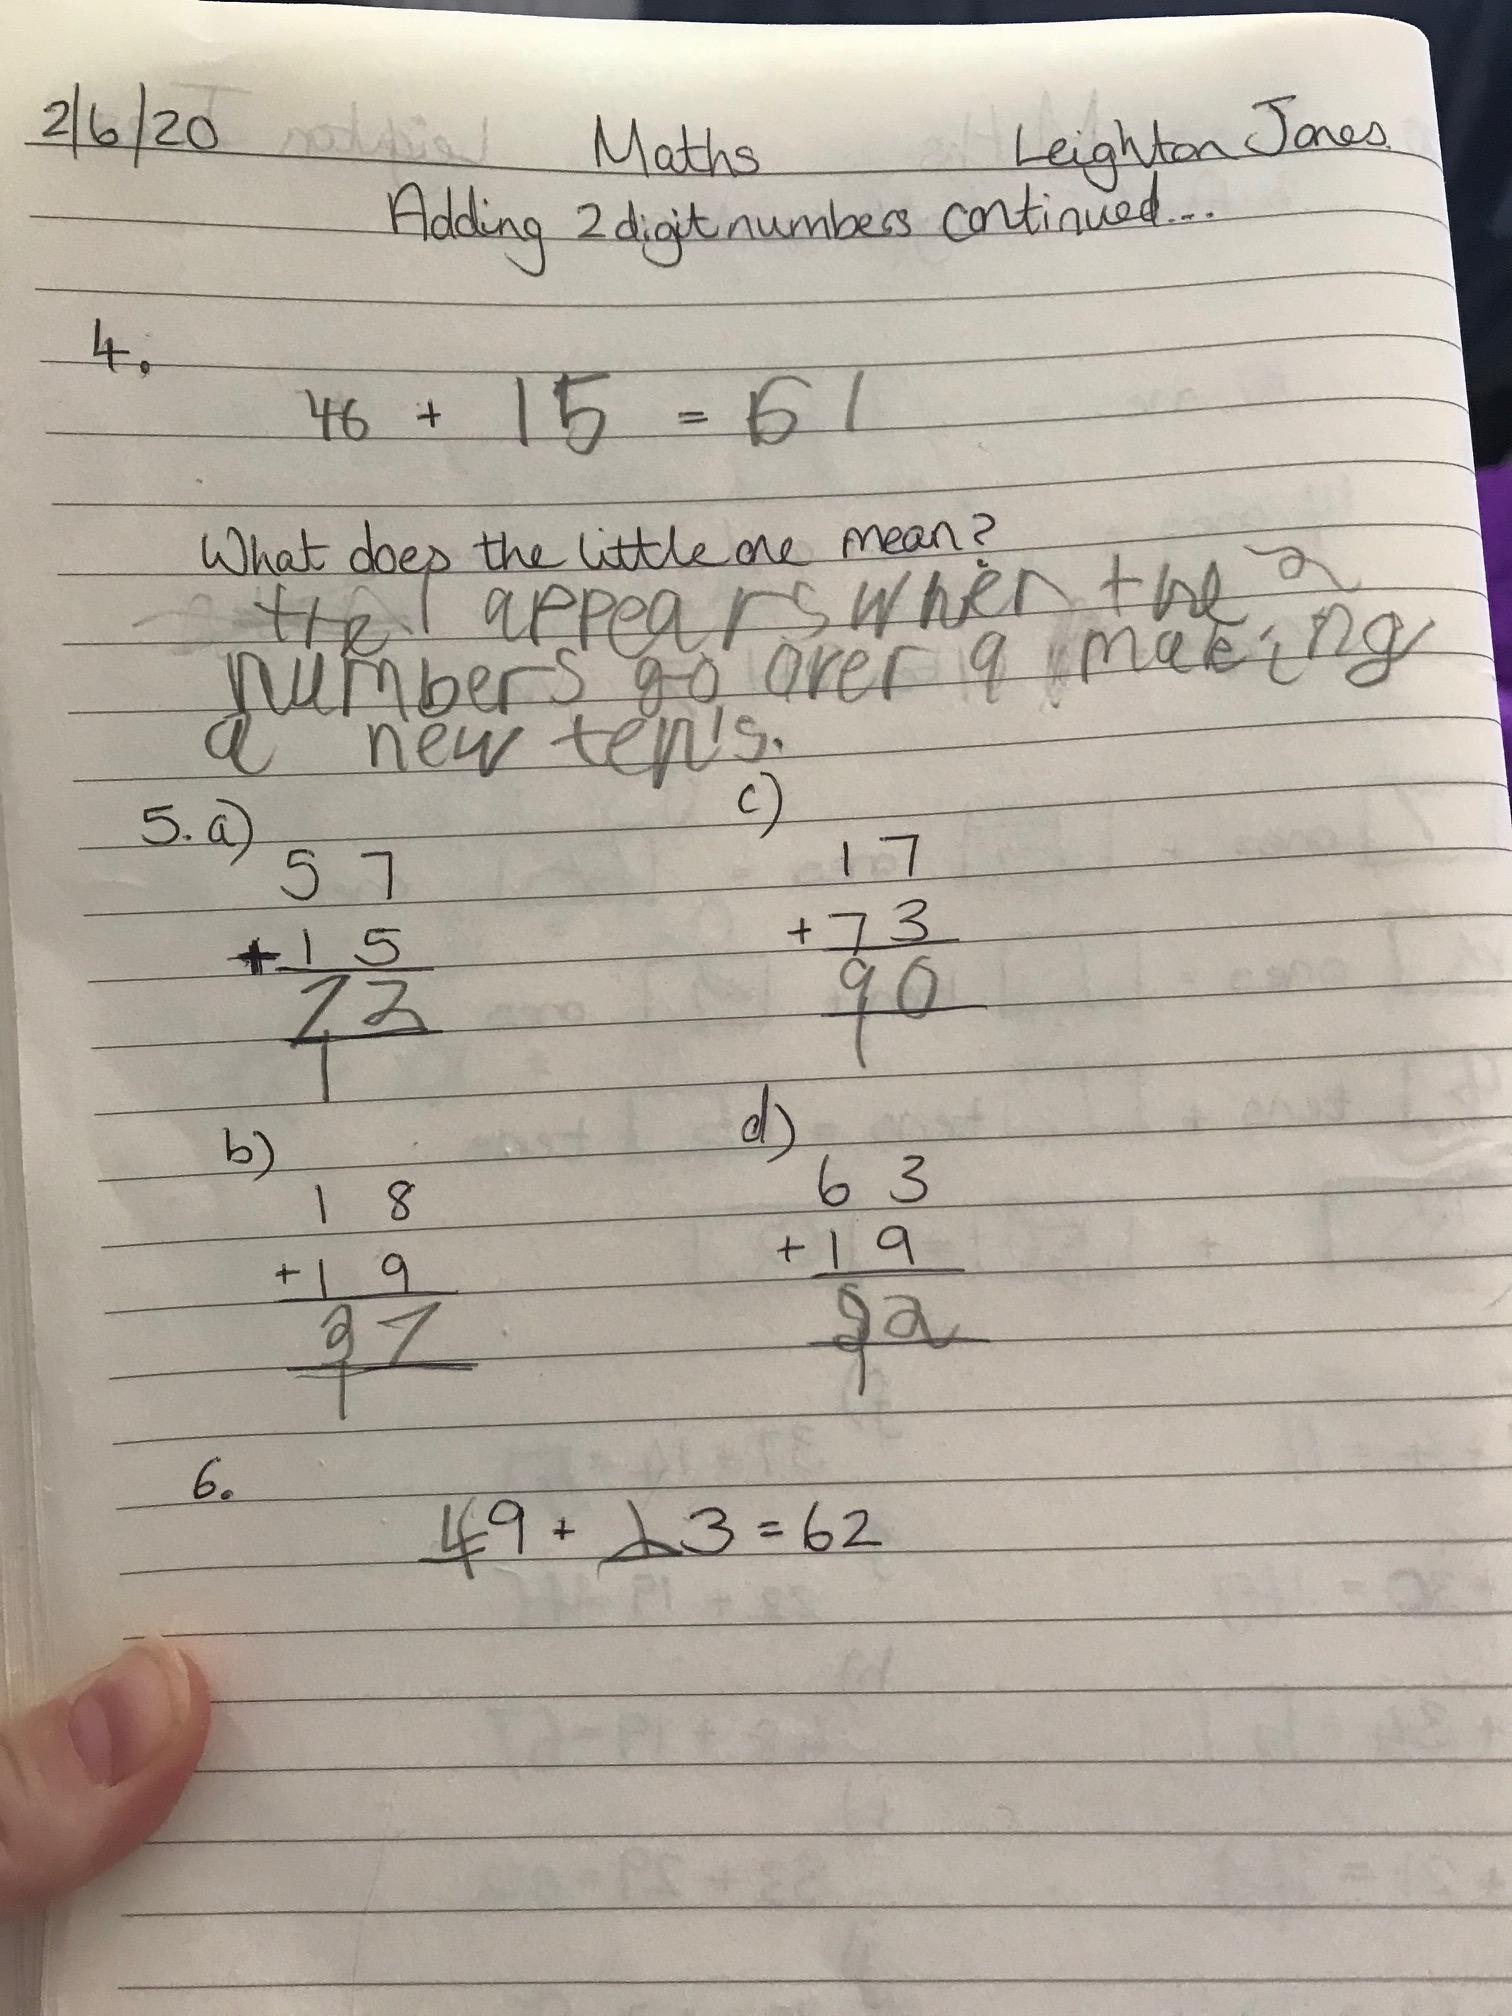 2/6/20 Maths Leighton Jones
Adding 2 digit numbers continued...
4.
46 + 15 = 61
What does the little one mean?
the 1 appears when the 2
numbers go over 9 making
a new ten's.
5. a)
5 7
+ 1 5
7 2
1
b)
1 8
+ 1 9
3 7
1
c)
1 7
+ 7 3
9 0
1
d)
6 3
+ 1 9
2
1
6.
49 + 13 = 62